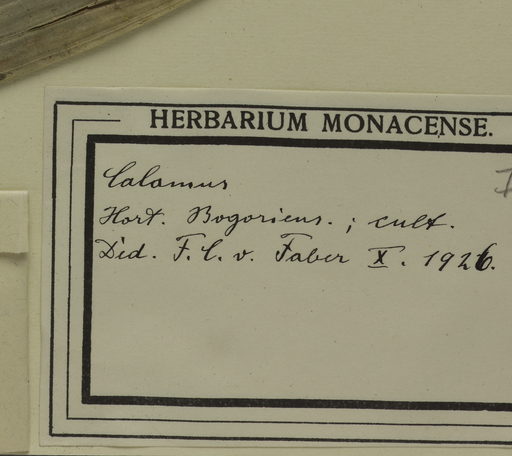 HERBARIUM MONACENSE.
Calamus
Hort. Bogoriens. ; cult.
Ded. F. C. v. Faber X. 1926.